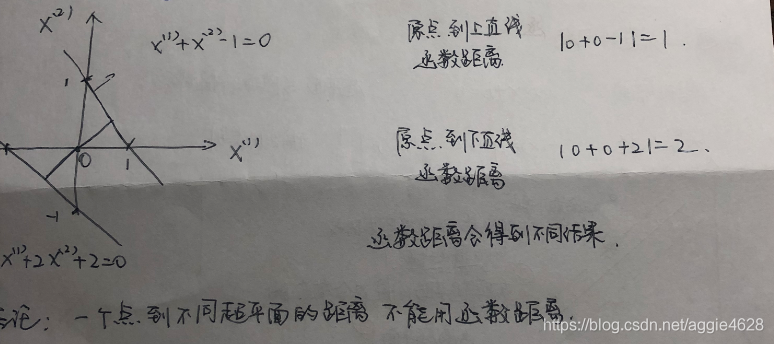 x⁽²⁾
x⁽¹⁾+x⁽²⁾-1=0
原点到上直线
函数距离
|0+0-1|=1.
1
0
1
x⁽¹⁾
原点到下直线
函数距离
|0+0+2|=2.
-1
函数距离会得到不同结果.
x⁽¹⁾+2x⁽²⁾+2=0
论: 一个点到不同超平面的距离 不能用函数距离.
https://blog.csdn.net/aggie4628